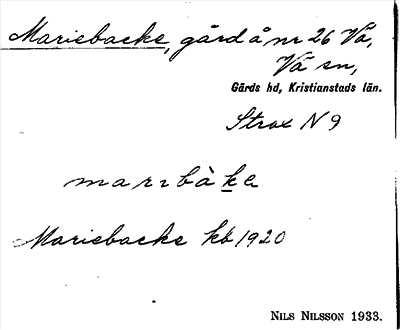 Mariebacke, gård å nr 26 Vä,
Vä sn,
Gärds hd, Kristianstads län.
Strax N 9
marrbàka
Mariebacke kb 1920
NILS NILSSON 1933.